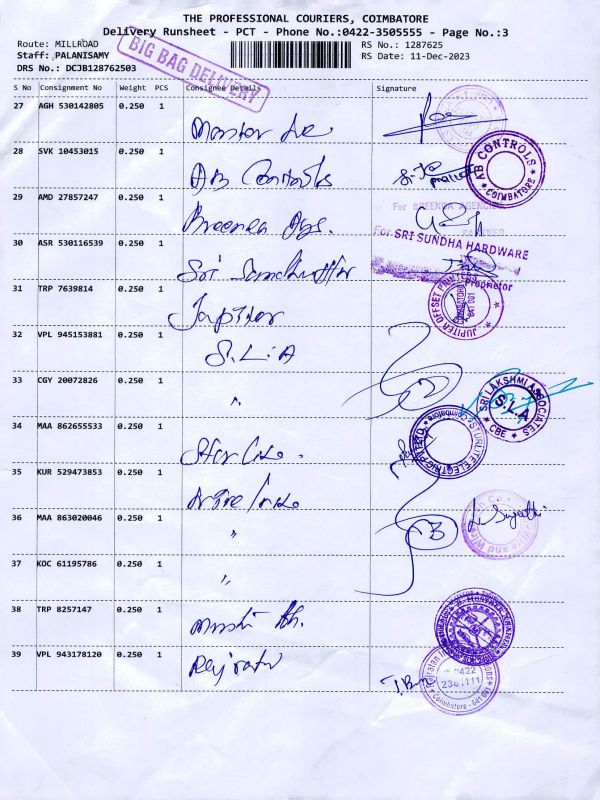 THE PROFESSIONAL COURIERS, COIMBATORE
Delivery Runsheet - PCT - Phone No.:0422-3505555 - Page No.:3
Route: MILLROAD
RS No.: 1287625
Staff: PALANISAMY
RS Date: 11-Dec-2023
DRS No.: DCJB128762503
BIG BAG DELIVERY
S No Consignment No Weight PCS Consignee Details Signature
27 AGH 530142805 0.250 1
28 SVK 10453015 0.250 1
AB CONTROLS
COIMBATORE
29 AMD 27857247 0.250 1
Breenda Ags.
For BREENDA AGENCIES
PARTNER
30 ASR 530116539 0.250 1
For SRI SUNDHA HARDWARE
Proprietor
31 TRP 7639814 0.250 1
Jupiter
JUPITER OFFSET PRINTERS
COIMBATORE
641 001
32 VPL 945153881 0.250 1
S.L.A
33 CGY 20072826 0.250 1
"
3
SRI LAKSHMI ASSOCIATES
S.L.A
CBE
34 MAA 862655533 0.250 1
35 KUR 529473853 0.250 1
36 MAA 863020046 0.250 1
"
3
37 KOC 61195786 0.250 1
"
38 TRP 8257147 0.250 1
39 VPL 943178120 0.250 1
0422
Coimbatore - 641 001